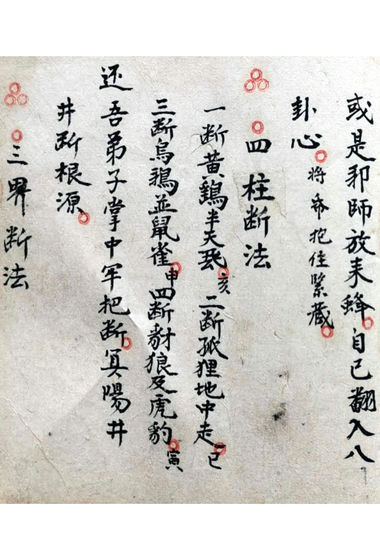 或是邪師放来蜂自已翻入八
卦心將帝抱住緊藏
四柱断法
一断黄鷄半天飛亥二断狐狸地中走巳
三断烏鴉並鼠雀申四断豺狼及虎豹寅
还吾弟子掌中军把断冥陽井
井断根源
三界断法